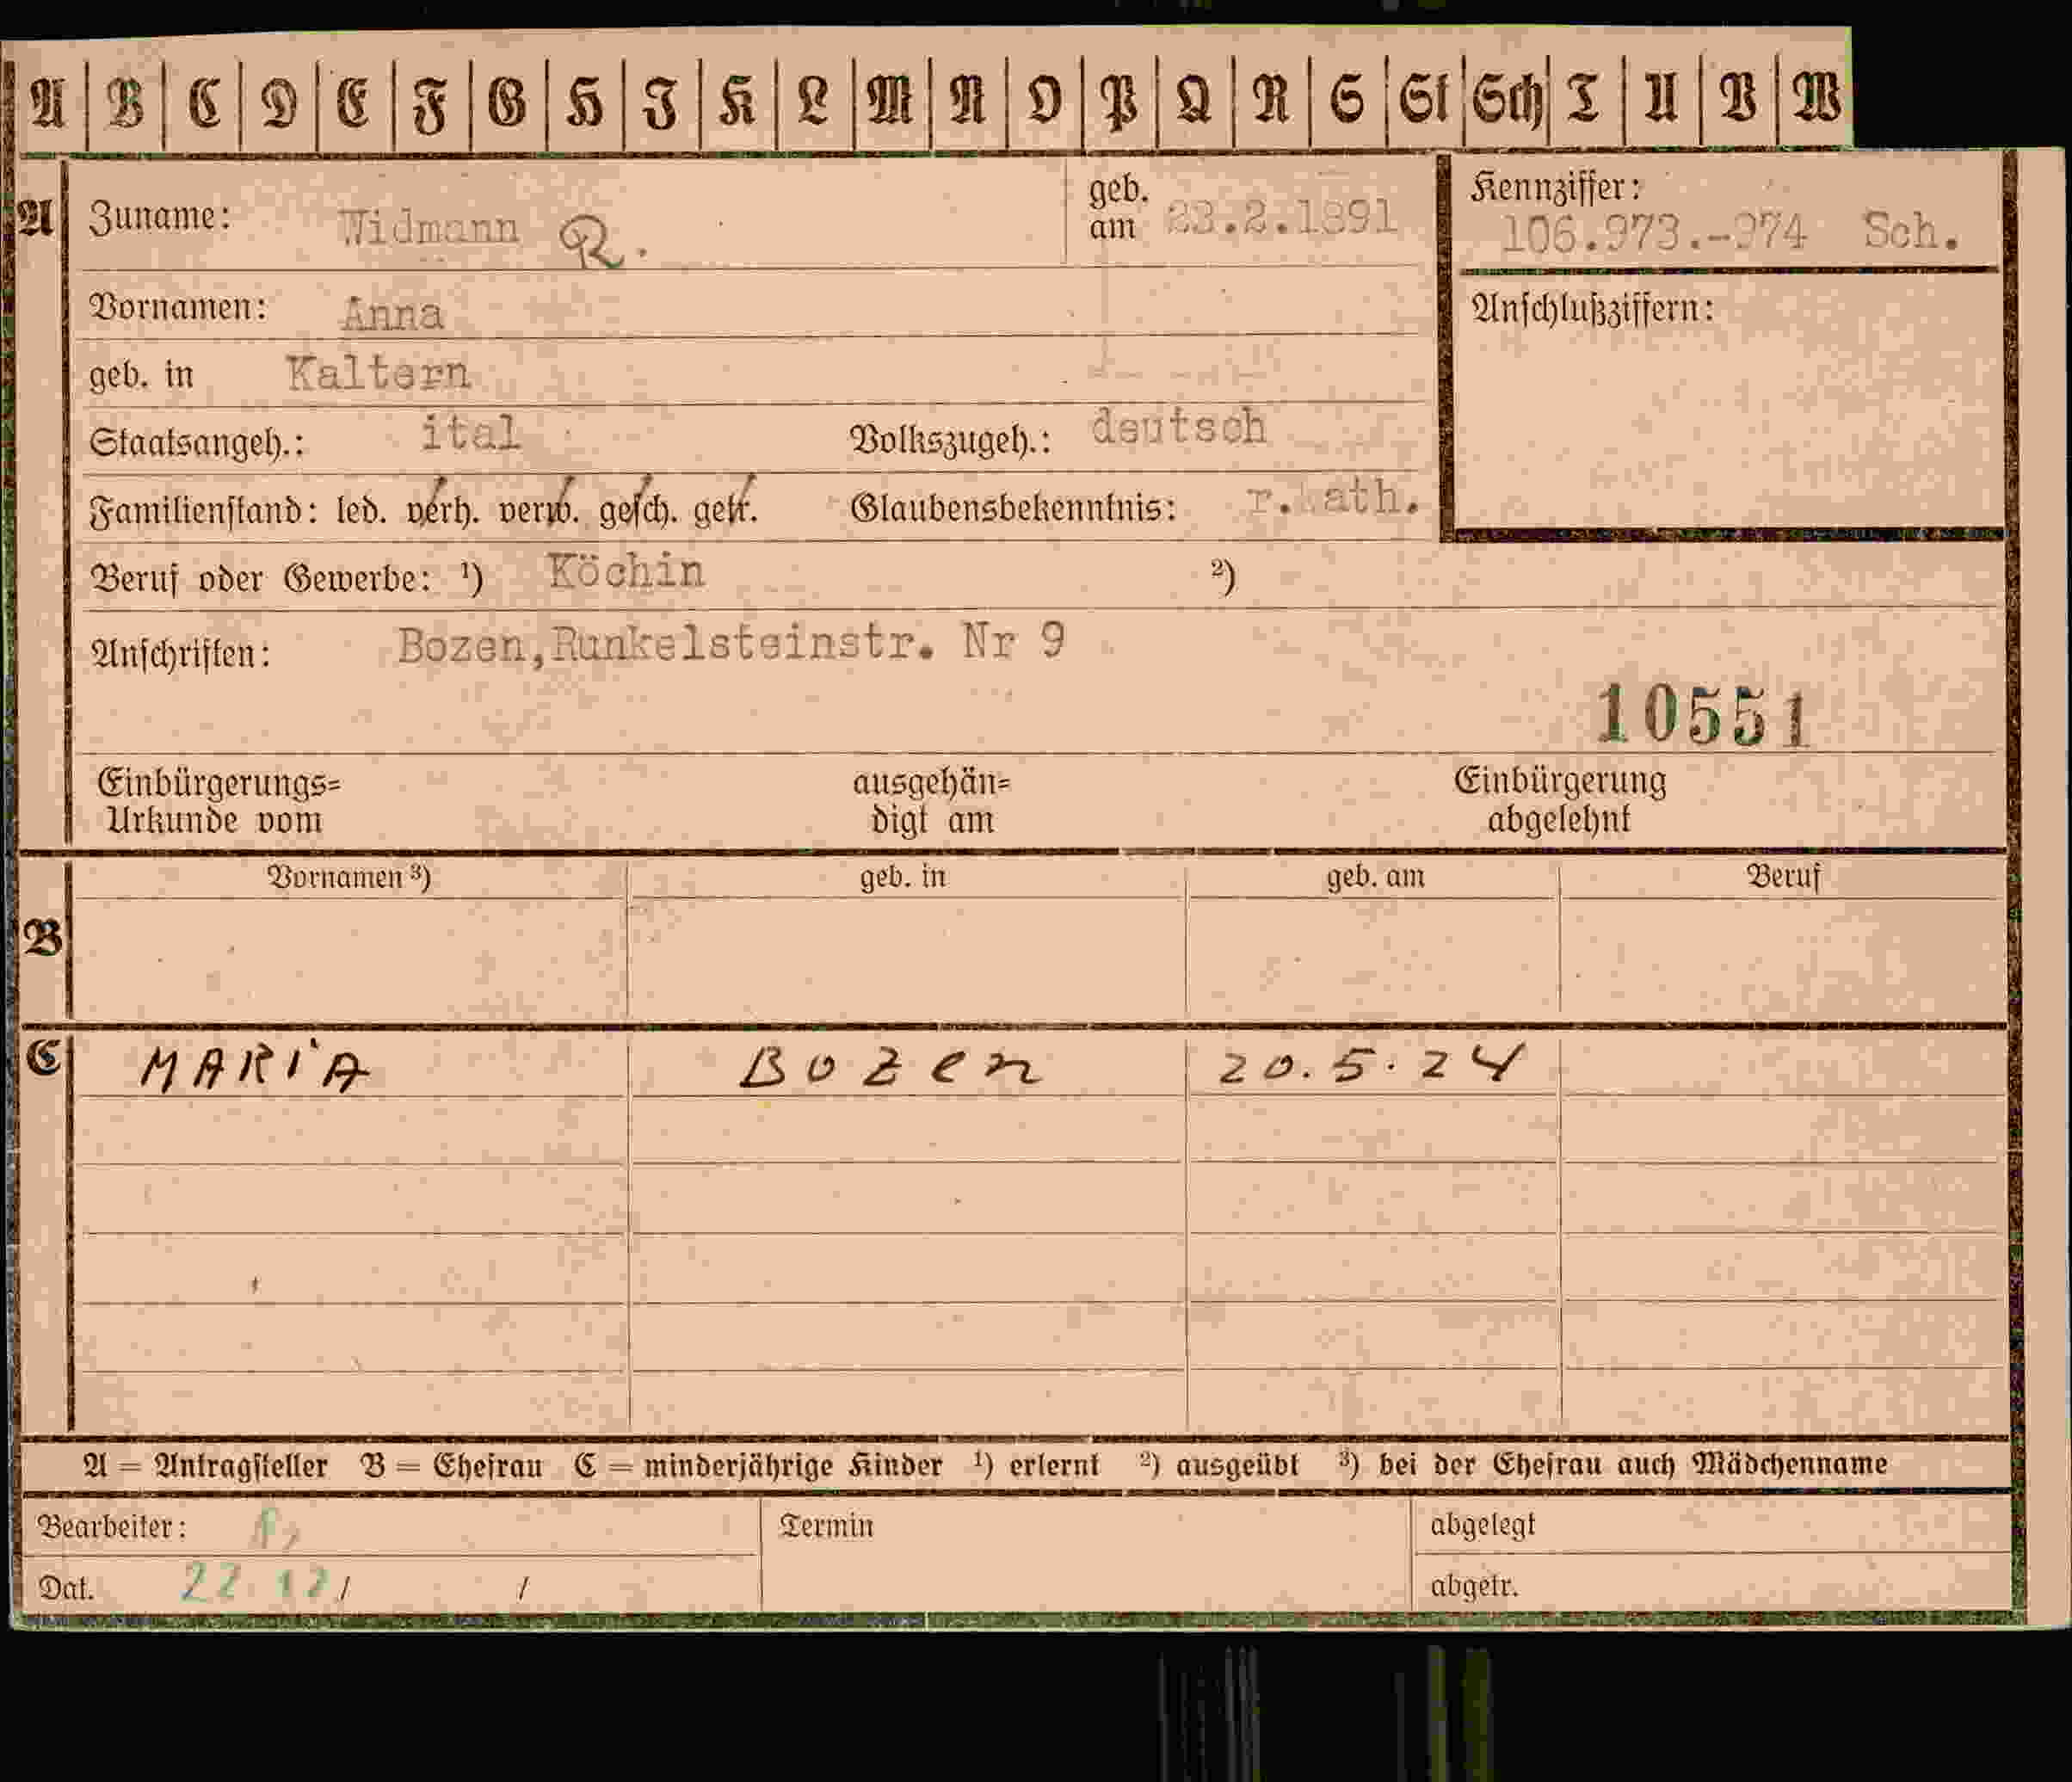 A B C D E F G H J K L M N O P Q R S St Sch T U V W
A
Zuname: Widmann R.
geb. am 23.2.1891
Kennziffer:
106.973.-974 Sch.
Vornamen: Anna
Anschlußziffern:
geb. in Kaltern
Staatsangeh.: ital Volkszugeh.: deutsch
Familienstand: led. verh. verw. gesch. getr. Glaubensbekenntnis: r. kath.
Beruf oder Gewerbe: ¹) Köchin ²)
Anschriften: Bozen,Runkelsteinstr. Nr 9
10551
Einbürgerungs= ausgehän= Einbürgerung
Urkunde vom digt am abgelehnt
Vornamen ³) geb. in geb. am Beruf
B
C MARiA Bozen 20.5.24
A = Antragsteller B = Ehefrau C = minderjährige Kinder ¹) erlernt ²) ausgeübt ³) bei der Ehefrau auch Mädchenname
Bearbeiter: Termin abgelegt
Dat. 22 12 / / abgetr.